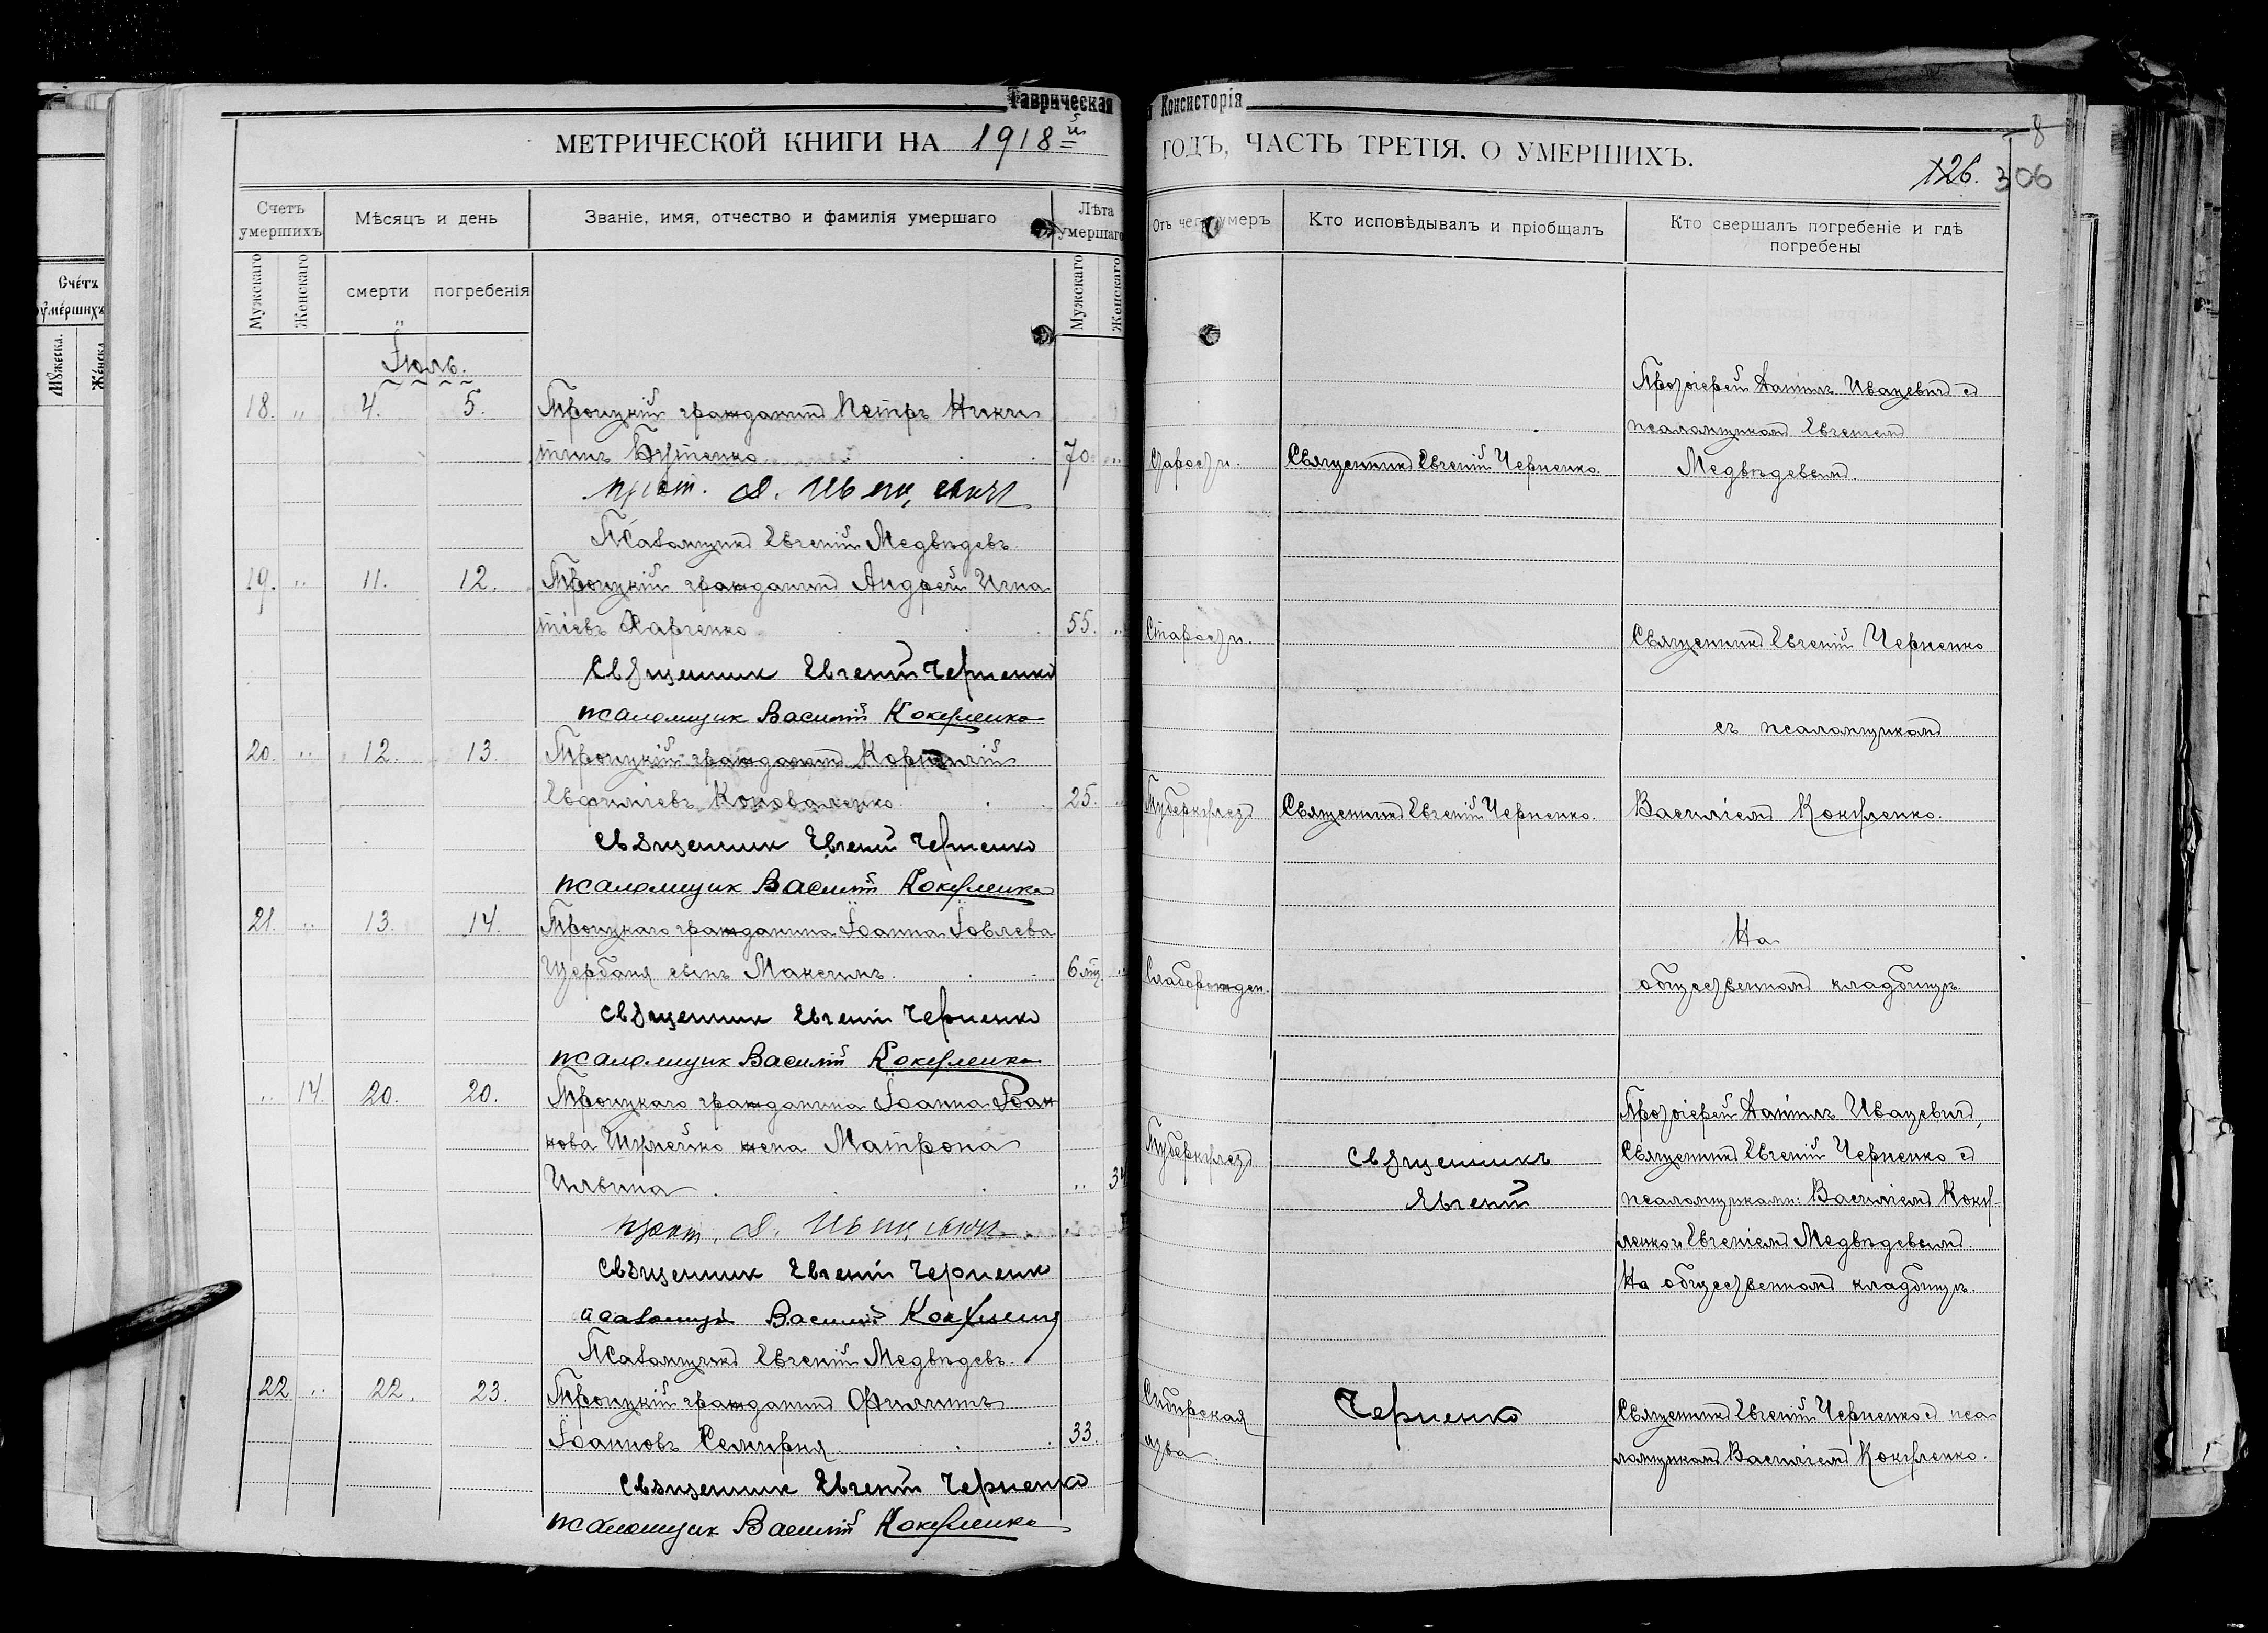 Таврическая
МЕТРИЧЕСКОЙ КНИГИ НА 1918й
Счетъ умершихъ
Мѣсяцъ и день
Званіе, имя, отчество и фамилія умершаго
Лѣта умершаго
Мужскаго
Женскаго
смерти
погребенія
Мужскаго
Женскаго
Іюль.
18. „ 4. 5. Троицкій гражданинъ Петръ Ники
тинъ 70. „
прот. Д.
Псаломщикъ Евгеній Медвѣдевъ.
19. „ 11. 12. Троицкій гражданинъ Андрей Игна
тіевъ Харченко 55. „
Священник Евгеній Черненко
псаломщик Василій Кокуленко
20. „ 12. 13. Троицкій гражданинъ Корнилій
Евфиміевъ Коноваленко. 25. „
Священник Евгеній Черненко
псаломщик Василій Кокуленко
21. „ 13. 14. Троицкаго гражданина Іоанна Іовлева
Щербаня сынъ Максимъ. 6 мц. „
Священник Евгеній Черненко
псаломщик Василій Кокуленко
„ 14. 20. 20. Троицкаго гражданина Іоанна Іоан
нова жена Матрона
Ильина „ 34
прот. Д.
Священник Евгеній Черненко
Василій
Псаломщикъ Евгеній Медвѣдевъ.
22 „ 22. 23. Троицкій гражданинъ Филиппъ
Іоанновъ 33.
Священник Евгеній Черненко
псаломщик Василій Кокуленко
я Консисторія
ГОДЪ, ЧАСТЬ ТРЕТІЯ. О УМЕРШИХЪ.
8
126. 306
Отъ чего умеръ
Кто исповѣдывалъ и пріобщалъ
Кто свершалъ погребеніе и гдѣ погребены
Протоіерей Даніилъ Иваневичъ съ
псаломщикомъ Евгеніемъ
Старости. Священникъ Евгеній Черненко. Медвѣдевымъ.
Старости. Священникъ Евгеній Черненко
съ псаломщикомъ
Туберкулезъ Священникъ Евгеній Черненко. Василіемъ Кокуленко.
На
Слаборожден. общественномъ кладбищѣ
Протоіерей Даніилъ Иваневичъ,
Туберкулезъ Священникъ Священникъ Евгеній Черненко съ
Евгеній псаломщиками: Василіемъ Коку-
ленко и Евгеніемъ Медвѣдевымъ.
На общественномъ кладбищѣ.
Сибирская Черненко Священникъ Евгеній Черненко съ пса
язва. ломщикомъ Василіемъ Кокуленко.
Счетъ умершихъ
Мужеска.
Женска